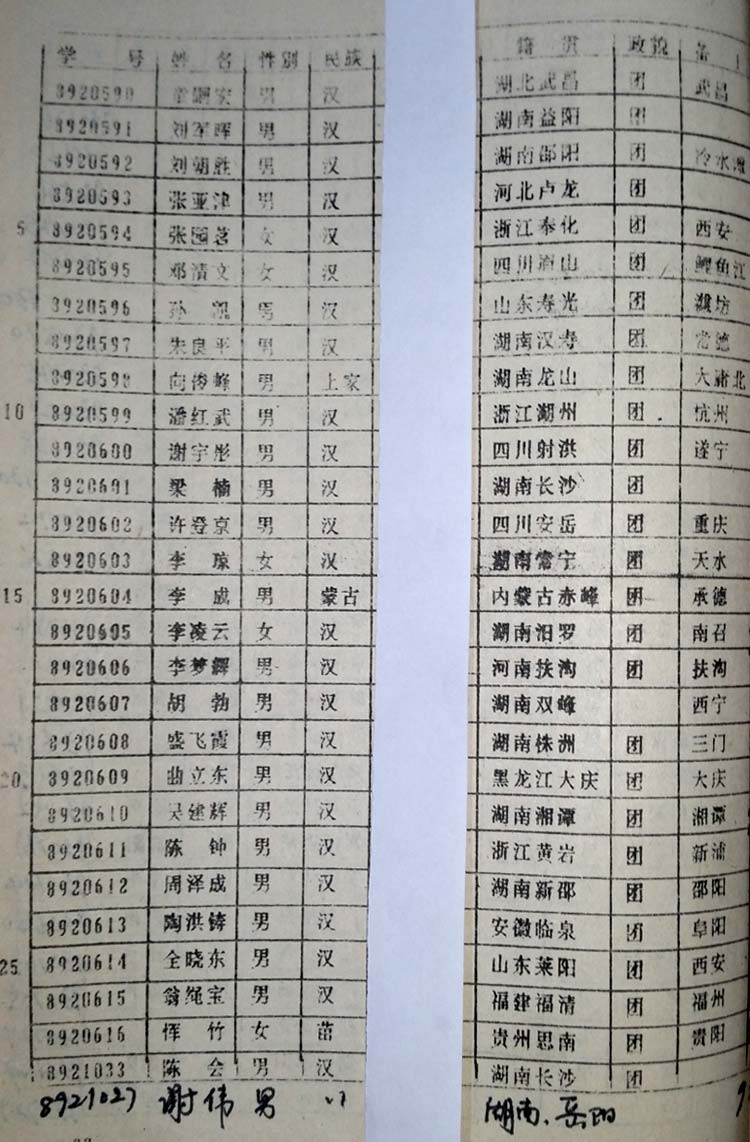 学号 姓名 性别 民族 籍贯 政貌
8920590 男 汉 湖北武昌 团 武昌
8920591 刘军晖 男 汉 湖南益阳 团
8920592 刘朝胜 男 汉 湖南邵阳 团 冷水滩
8920593 张亚津 男 汉 河北卢龙 团
5 8920594 张园茗 女 汉 浙江奉化 团 西安
8920595 邓清文 女 汉 四川眉山 团 鲤鱼江
8920596 孙凯 男 汉 山东寿光 团 潍坊
8920597 朱良平 男 汉 湖南汉寿 团 常德
8920598 向俊峰 男 土家 湖南龙山 团 大庸北
10 8920599 潘红武 男 汉 浙江湖州 团 杭州
8920600 谢宇彤 男 汉 四川射洪 团 遂宁
8920601 梁楠 男 汉 湖南长沙 团
8920602 许登京 男 汉 四川安岳 团 重庆
8920603 李琼 女 汉 湖南常宁 团 天水
15 8920604 李成 男 蒙古 内蒙古赤峰 团 承德
8920605 李凌云 女 汉 湖南汨罗 团 南召
8920606 李梦辉 男 汉 河南扶沟 团 扶沟
8920607 胡勃 男 汉 湖南双峰 西宁
8920608 盛飞霞 男 汉 湖南株洲 团 三门
20 8920609 曲立东 男 汉 黑龙江大庆 团 大庆
8920610 吴建辉 男 汉 湖南湘潭 团 湘潭
8920611 陈钟 男 汉 浙江黄岩 团 新浦
8920612 周泽成 男 汉 湖南新邵 团 邵阳
8920613 陶洪铸 男 汉 安徽临泉 团 阜阳
25 8920614 全晓东 男 汉 山东莱阳 团 西安
8920615 翁绳宝 男 汉 福建福清 团 福州
8920616 恽竹 女 苗 贵州思南 团 贵阳
8921033 陈会 男 汉 湖南长沙 团
8921027 谢伟 男 〃 湖南、岳阳